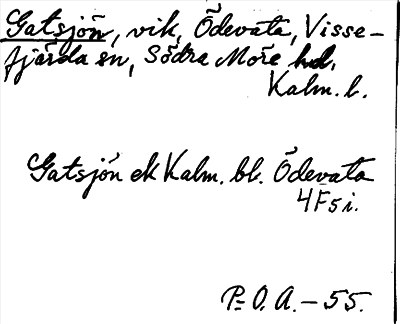 Gatsjön, vik, Ödevata, Visse-
fjärda sn, Södra Möre hd,
Kalm. l.
Gatsjön ek Kalm. bl. Ödevata
4F5i.
P-O.A.-55.